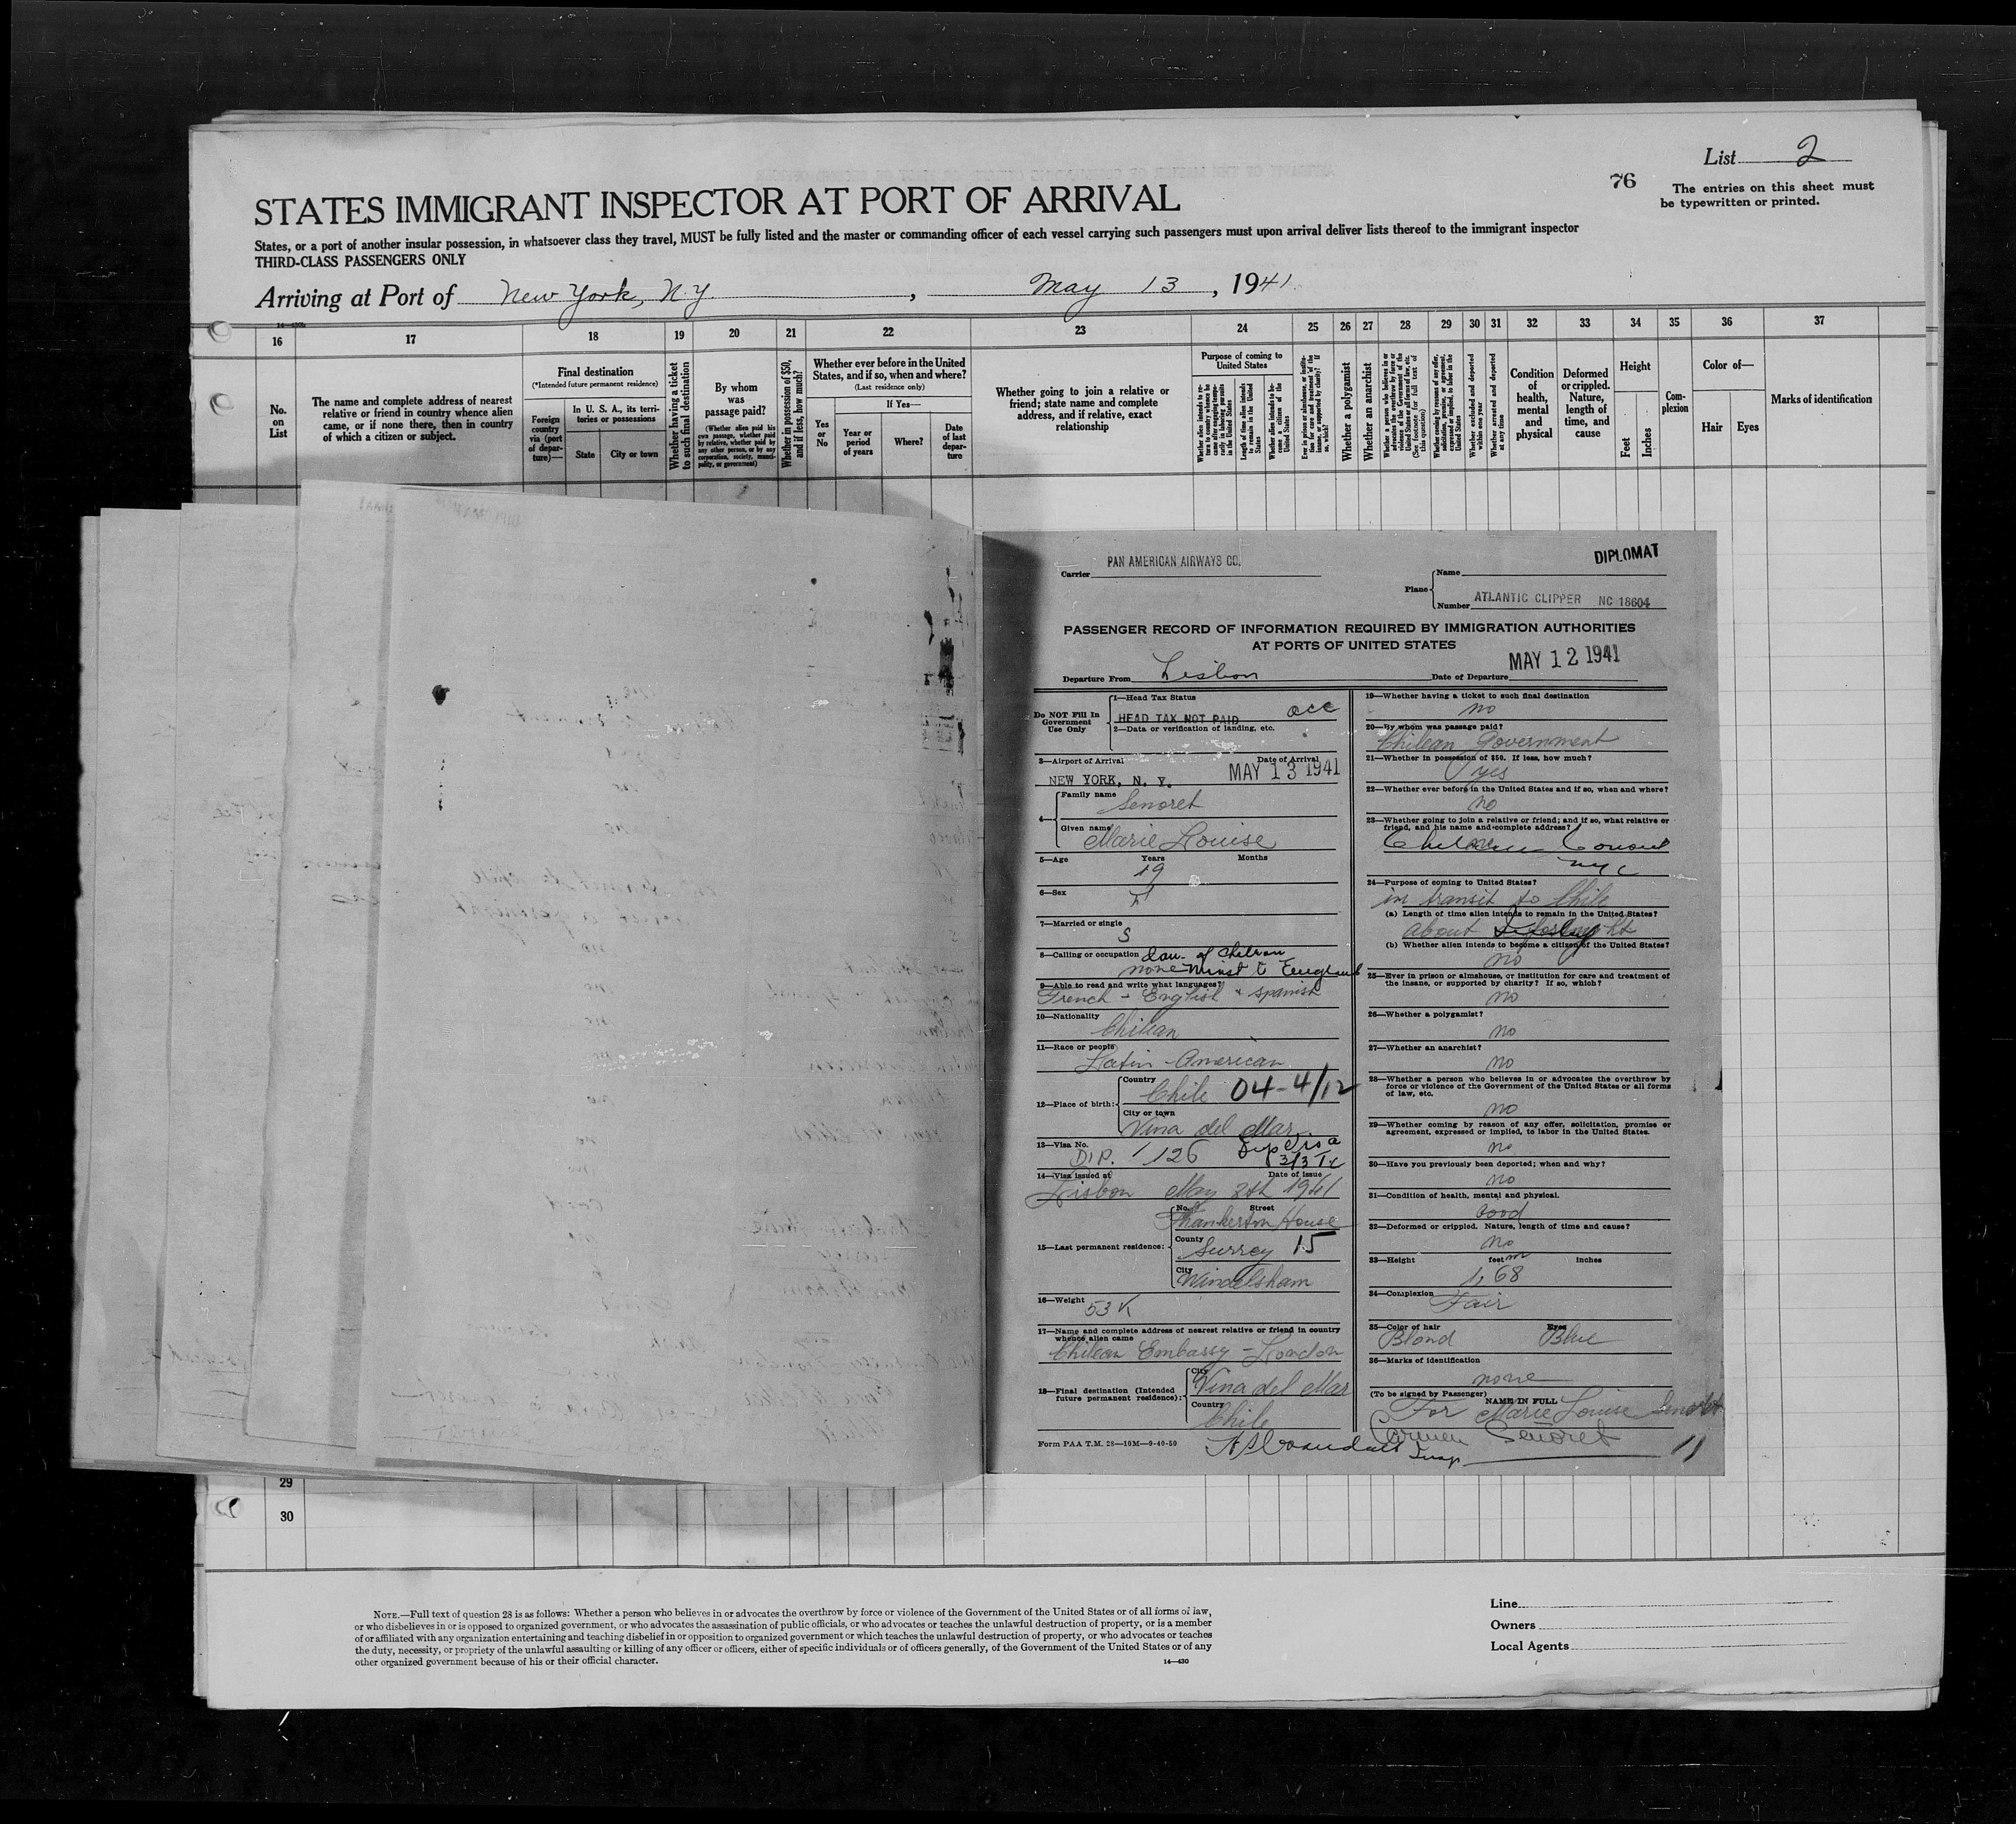 List 2
76
The entries on this sheet must
be typewritten or printed.
STATES IMMIGRANT INSPECTOR AT PORT OF ARRIVAL
States, or a port of another insular possession, in whatsoever class they travel, MUST be fully listed and the master or commanding officer of each vessel carrying such passengers must upon arrival deliver lists thereof to the immigrant inspector
THIRD-CLASS PASSENGERS ONLY
Arriving at Port of New York, N.Y. , May 13 , 1941
16 17 18 19 20 21 22 23 24 25 26 27 28 29 30 31 32 33 34 35 36 37
No. on List
The name and complete address of nearest
relative or friend in country whence alien
came, or if none there, then in country
of which a citizen or subject.
Final destination
(*Intended future permanent residence)
Foreign country via (port of departure)—
In U. S. A., its territories or possessions
State
City or town
Whether having a ticket to such final destination
By whom was passage paid?
(Whether alien paid his own passage, whether paid by relative, whether paid by any other person, or by any corporation, society, municipality, or government)
Whether in possession of $50, and if less, how much?
Whether ever before in the United
States, and if so, when and where?
(Last residence only)
Yes or No
If Yes—
Year or period of years
Where?
Date of last departure
Whether going to join a relative or
friend; state name and complete
address, and if relative, exact
relationship
Purpose of coming to
United States
Length of time alien intends to remain in the United States
Whether alien intends to become a citizen of the United States
Whether a polygamist
Whether an anarchist
Whether excluded and deported within one year
Whether arrested and deported at any time
Condition of health, mental and physical
Deformed or crippled. Nature, length of time, and cause
Height
Feet
Inches
Complexion
Color of—
Hair
Eyes
Marks of identification
PAN AMERICAN AIRWAYS CO.
Carrier
DIPLOMAT
Plane
Name
Number ATLANTIC CLIPPER NC 18604
PASSENGER RECORD OF INFORMATION REQUIRED BY IMMIGRATION AUTHORITIES
AT PORTS OF UNITED STATES
Departure From Lisbon
Date of Departure MAY 12 1941
Do NOT Fill In
Government
Use Only
1—Head Tax Status
HEAD TAX NOT PAID
2—Data or verification of landing, etc.
3—Airport of Arrival NEW YORK, N. Y.
Date of Arrival MAY 13 1941
4—
Family name Senoret
Given name Marie Louise
5—Age Years 19 Months
6—Sex F
7—Married or single S
8—Calling or occupation dau. of Chilean
none Minst to England
9—Able to read and write what languages?
French - English & Spanish
10—Nationality Chilean
11—Race or people Latin-American
12—Place of birth:
Country Chile 04-4/12
City or town Vina del Mar
13—Visa No. DIP. 126
14—Visa issued at Lisbon
Date of issue May 8th 1941
15—Last permanent residence:
No. Street Thankerton House
County Surrey 15
City Windelsham
16—Weight 53 K
17—Name and complete address of nearest relative or friend in country
whence alien came
Chilean Embassy - London
18—Final destination (Intended
future permanent residence):
City Vina del Mar
Country Chile
Form PAA T.M. 28—10M—9-40-50
19—Whether having a ticket to such final destination
no
20—By whom was passage paid?
Chilean Government
21—Whether in possession of $50. If less, how much?
yes
22—Whether ever before in the United States and if so, when and where?
no
23—Whether going to join a relative or friend; and if so, what relative or
friend, and his name and complete address?
Chilean Consul
NYC
24—Purpose of coming to United States?
in transit to Chile
(a) Length of time alien intends to remain in the United States?
about
(b) Whether alien intends to become a citizen of the United States?
no
25—Ever in prison or almshouse, or institution for care and treatment of
the insane, or supported by charity? If so, which?
no
26—Whether a polygamist?
no
27—Whether an anarchist?
no
28—Whether a person who believes in or advocates the overthrow by
force or violence of the Government of the United States or all forms
of law, etc.
no
29—Whether coming by reason of any offer, solicitation, promise or
agreement, expressed or implied, to labor in the United States.
no
30—Have you previously been deported; when and why?
no
31—Condition of health, mental and physical.
Good
32—Deformed or crippled. Nature, length of time and cause?
no
33—Height feet inches
1,68
34—Complexion Fair
35—Color of hair Blond
Eyes Blue
36—Marks of identification
none
(To be signed by Passenger)
NAME IN FULL
For Marie Louise Senoret
Carmen Senoret
Insp
11
29
30
NOTE.—Full text of question 28 is as follows: Whether a person who believes in or advocates the overthrow by force or violence of the Government of the United States or of all forms of law,
or who disbelieves in or is opposed to organized government, or who advocates the assassination of public officials, or who advocates or teaches the unlawful destruction of property, or is a member
of or affiliated with any organization entertaining and teaching disbelief in or opposition to organized government or which teaches the unlawful destruction of property, or who advocates or teaches
the duty, necessity, or propriety of the unlawful assaulting or killing of any officer or officers, either of specific individuals or of officers generally, of the Government of the United States or of any
other organized government because of his or their official character.
14—430
Line
Owners
Local Agents